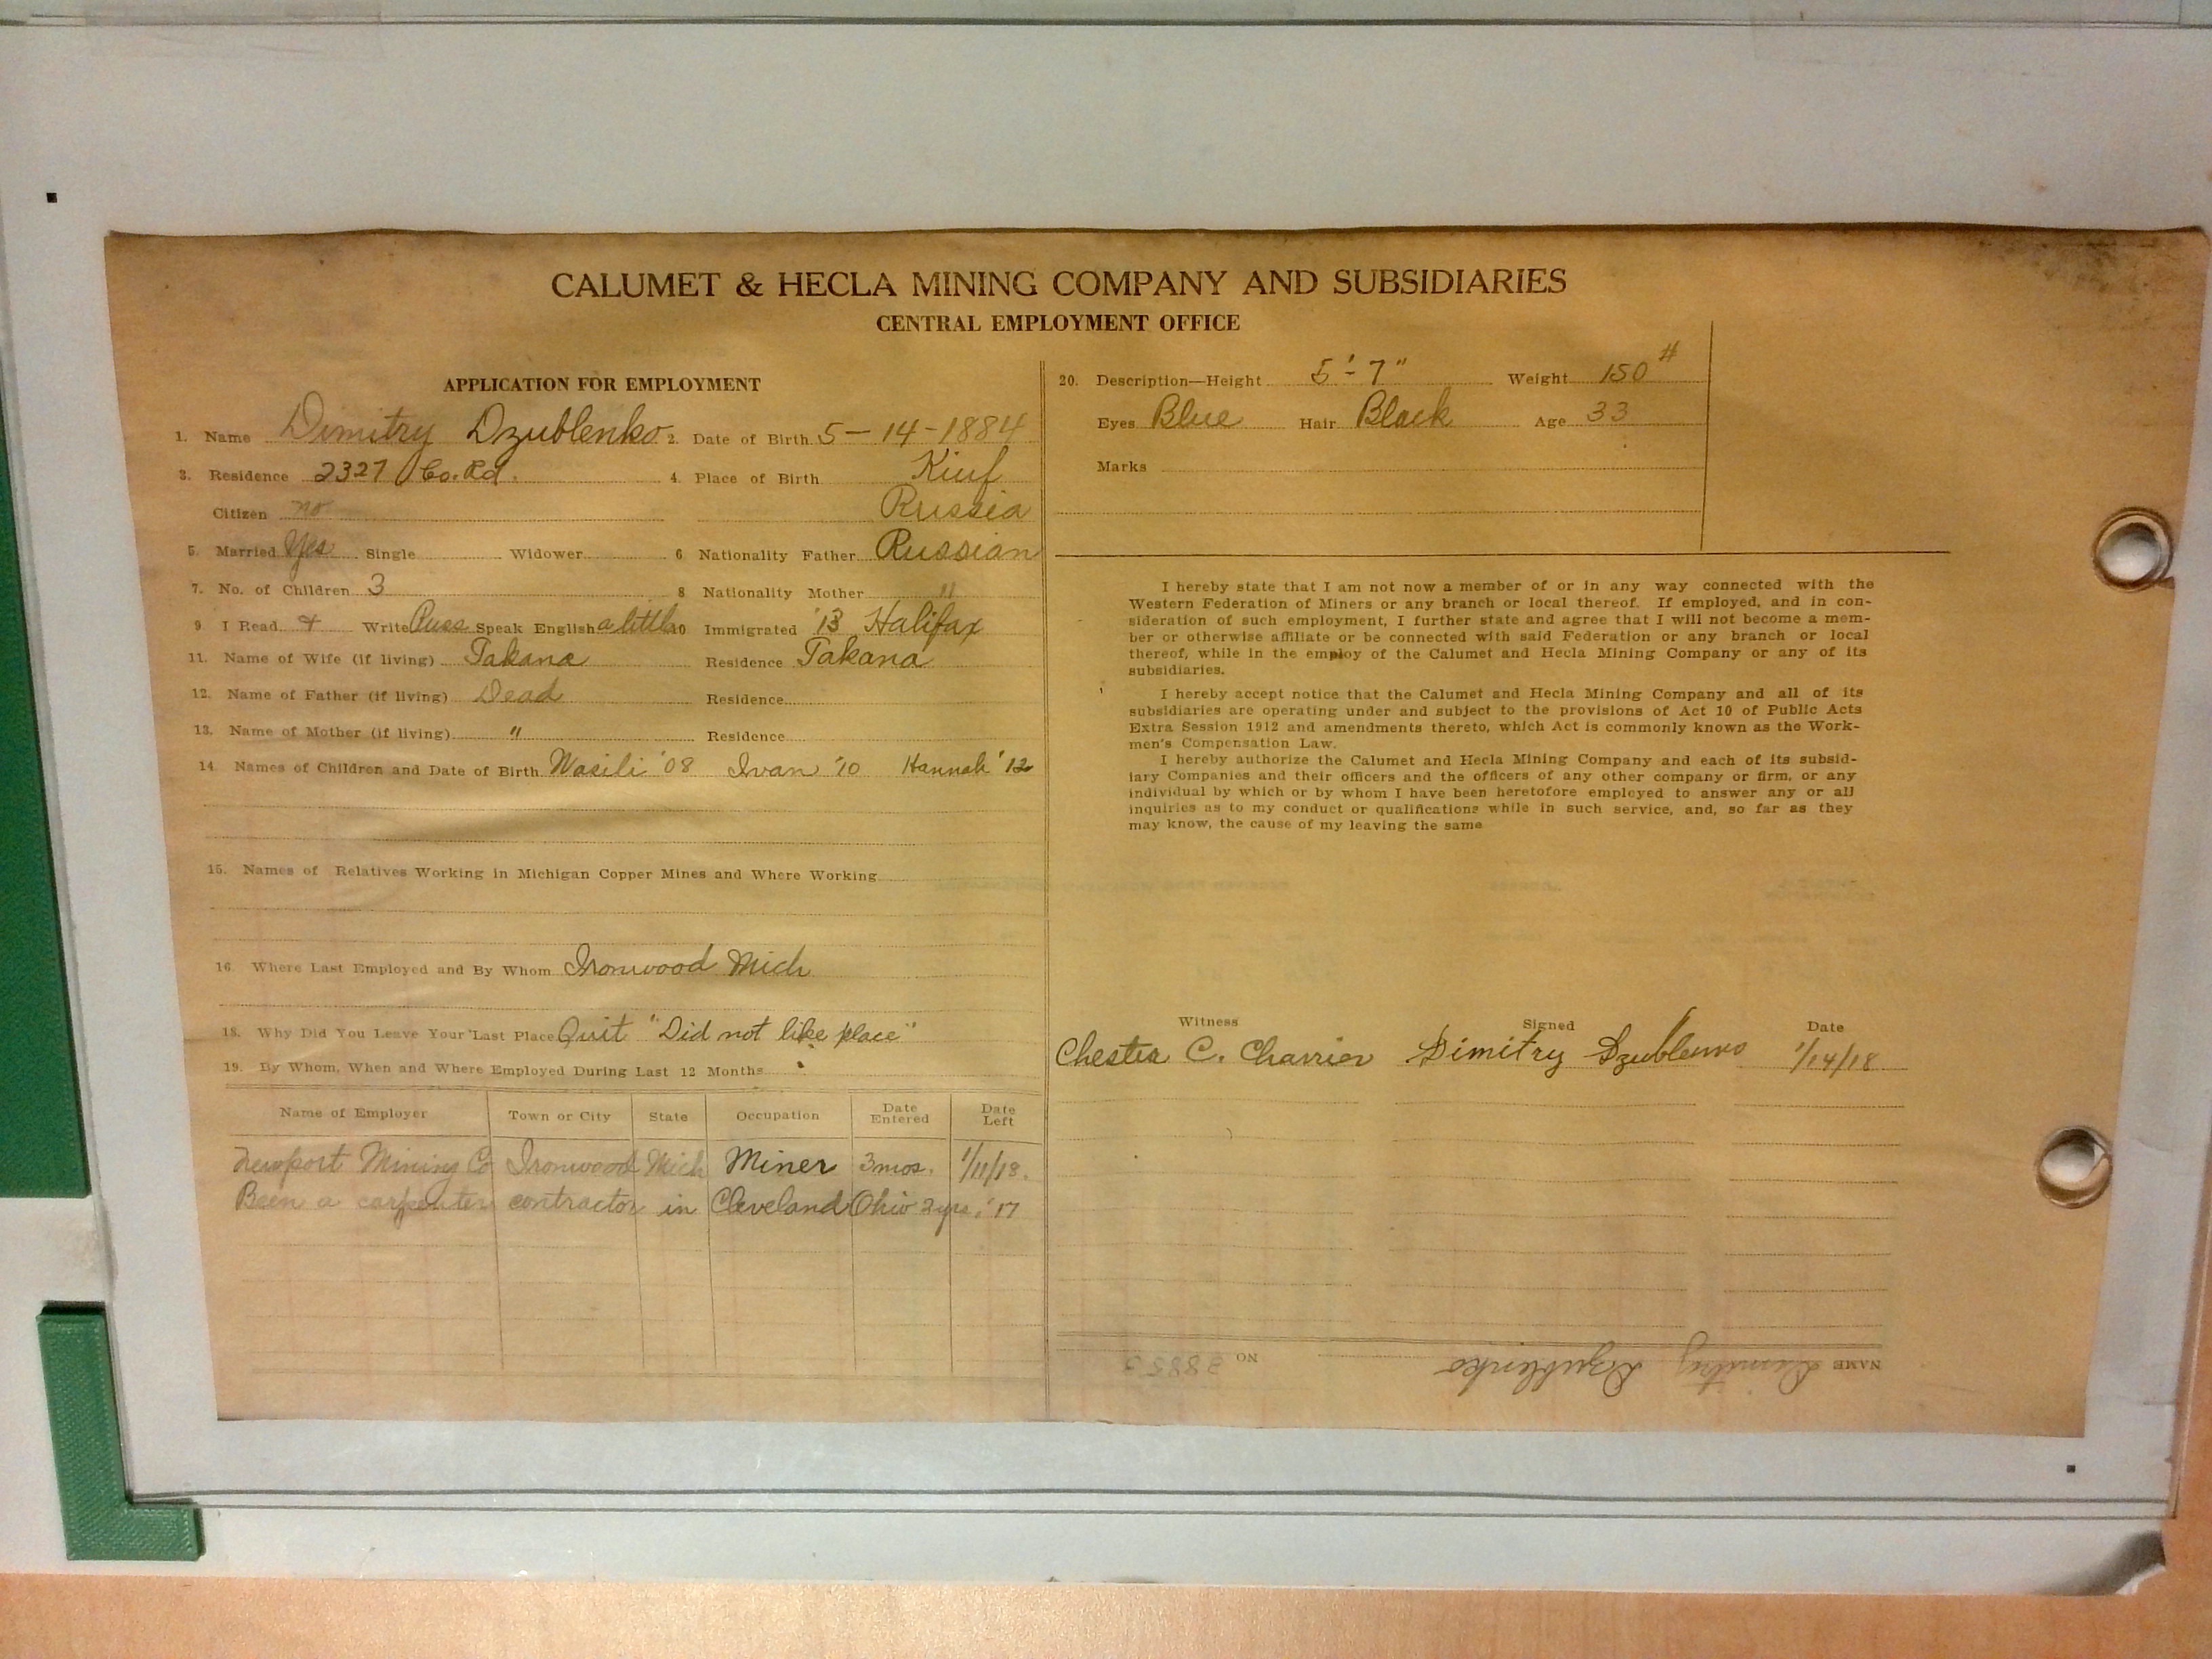 CALUMET & HECLA MINING COMPANY AND SUBSIDIARIES
CENTRAL EMPLOYMENT OFFICE
APPLICATION FOR EMPLOYMENT
1. Name Dimitry Dzublenko 2. Date of Birth 5-14-1884
3. Residence 2327 Co. Rd. 4. Place of Birth Kiuf
Citizen no Russia
5. Married Yes Single Widower 6 Nationality Father Russian
7. No. of Children 3 8 Nationality Mother "
9. I Read + Write Russ Speak English a little 10 Immigrated '13 Halifax
11. Name of Wife (if living) Takana Residence Takana
12. Name of Father (if living) Dead Residence
13. Name of Mother (if living) " Residence
14. Names of Children and Date of Birth Wasili '08 Ivan '10 Hannah '12
15. Names of Relatives Working in Michigan Copper Mines and Where Working
16. Where Last Employed and By Whom Ironwood Mich
18. Why Did You Leave Your Last Place Quit "Did not like place"
19. By Whom, When and Where Employed During Last 12 Months
Name of Employer Town or City State Occupation Date Entered Date Left
Newport Mining Co Ironwood Mich Miner 3 mos. 1/11/18.
Been a carpenter contractor in Cleveland Ohio 2 yrs. '17
20. Description—Height 5'-7" Weight 150#
Eyes Blue Hair Black Age 33
Marks
I hereby state that I am not now a member of or in any way connected with the
Western Federation of Miners or any branch or local thereof. If employed, and in con-
sideration of such employment, I further state and agree that I will not become a mem-
ber or otherwise affiliate or be connected with said Federation or any branch or local
thereof, while in the employ of the Calumet and Hecla Mining Company or any of its
subsidiaries.
I hereby accept notice that the Calumet and Hecla Mining Company and all of its
subsidiaries are operating under and subject to the provisions of Act 10 of Public Acts
Extra Session 1912 and amendments thereto, which Act is commonly known as the Work-
men's Compensation Law.
I hereby authorize the Calumet and Hecla Mining Company and each of its subsid-
iary Companies and their officers and the officers of any other company or firm, or any
individual by which or by whom I have been heretofore employed to answer any or all
inquiries as to my conduct or qualifications while in such service, and, so far as they
may know, the cause of my leaving the same
Witness Signed Date
Chester C. Charrier Dimitry Dzublenko 1/14/18
NAME Dimitry Dzublenko NO